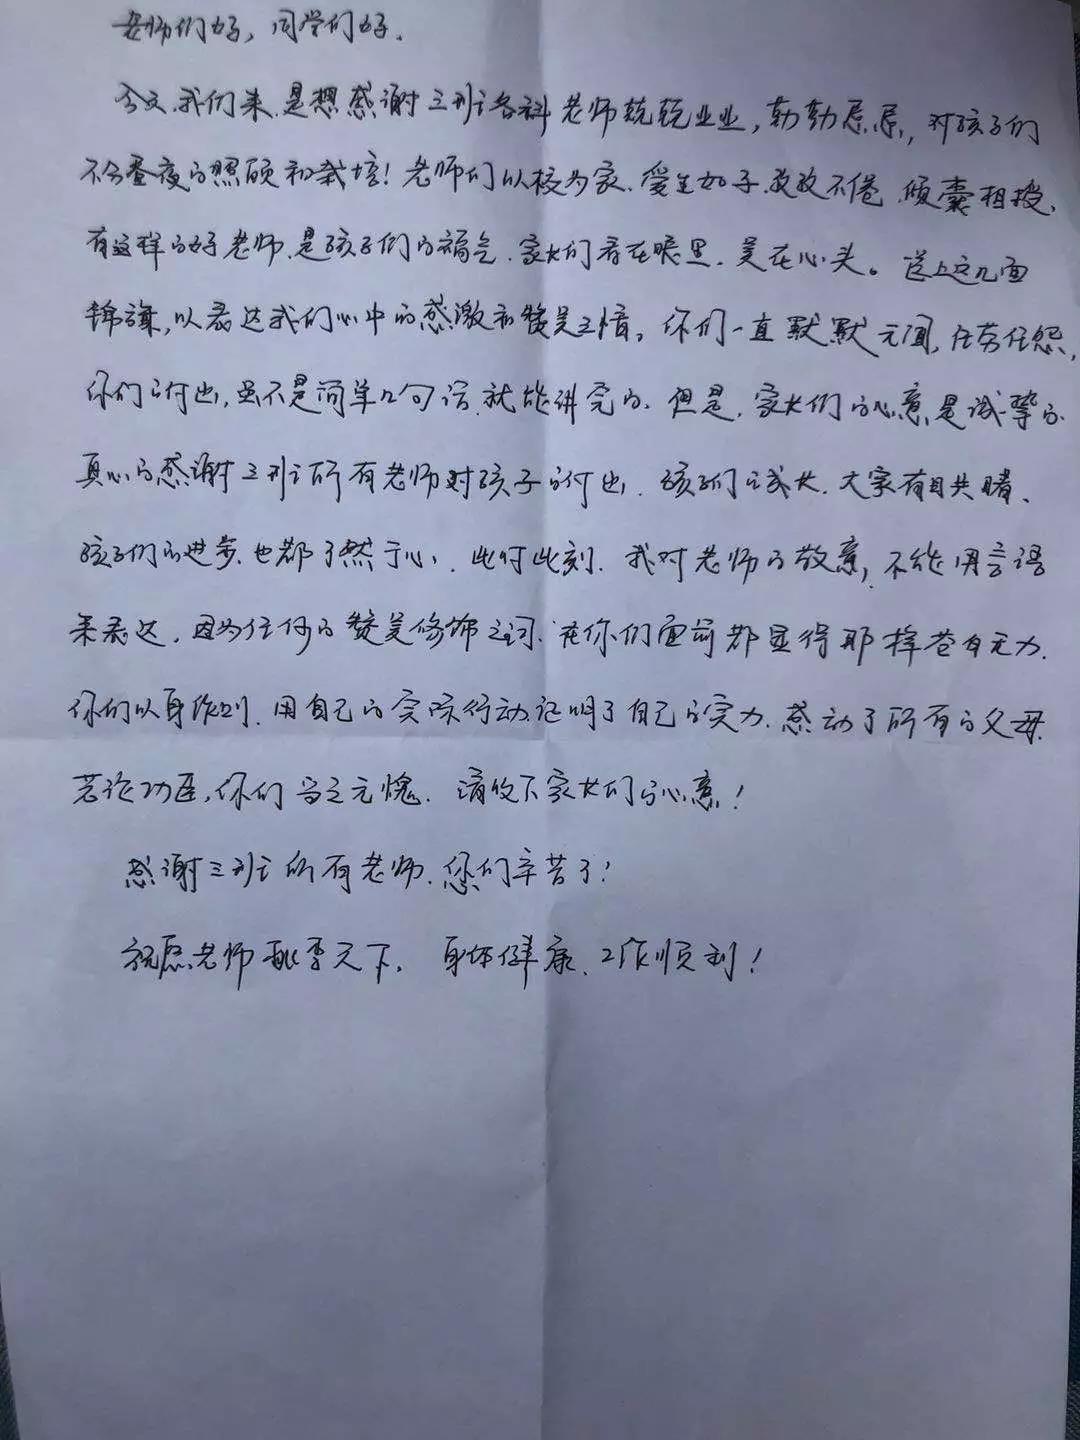 老师们好，同学们好.
今天.我们来.是想感谢三班各科老师兢兢业业，勤勤恳恳，对孩子们
不分昼夜的照顾和栽培！老师们以校为家.爱生如子.孜孜不倦.倾囊相授、
有这样的好老师.是孩子们的福气.家长们看在眼里.美在心头。送上这几面
锦旗，以表达我们心中的感激和赞美之情。你们一直默默无闻，任劳任怨，
你们的付出，虽不是简单几句话.就能讲完的.但是.家长们的心意是诚挚的.
真心的感谢三班所有老师对孩子的付出.孩子们的成长.大家有目共睹、
孩子们的进步.也都了然于心.此时此刻.我对老师的敬意，不能用言语
来表达，因为任何的赞美修饰之词.在你们面前都显得那样苍白无力.
你们以身作则.用自己的实际行动.证明了自己的实力.感动了所有的父母.
若论功臣，你们当之无愧.请收下家长们的心意！
感谢三班所有老师.您们辛苦了！
祝愿老师桃李天下，身体健康、工作顺利！